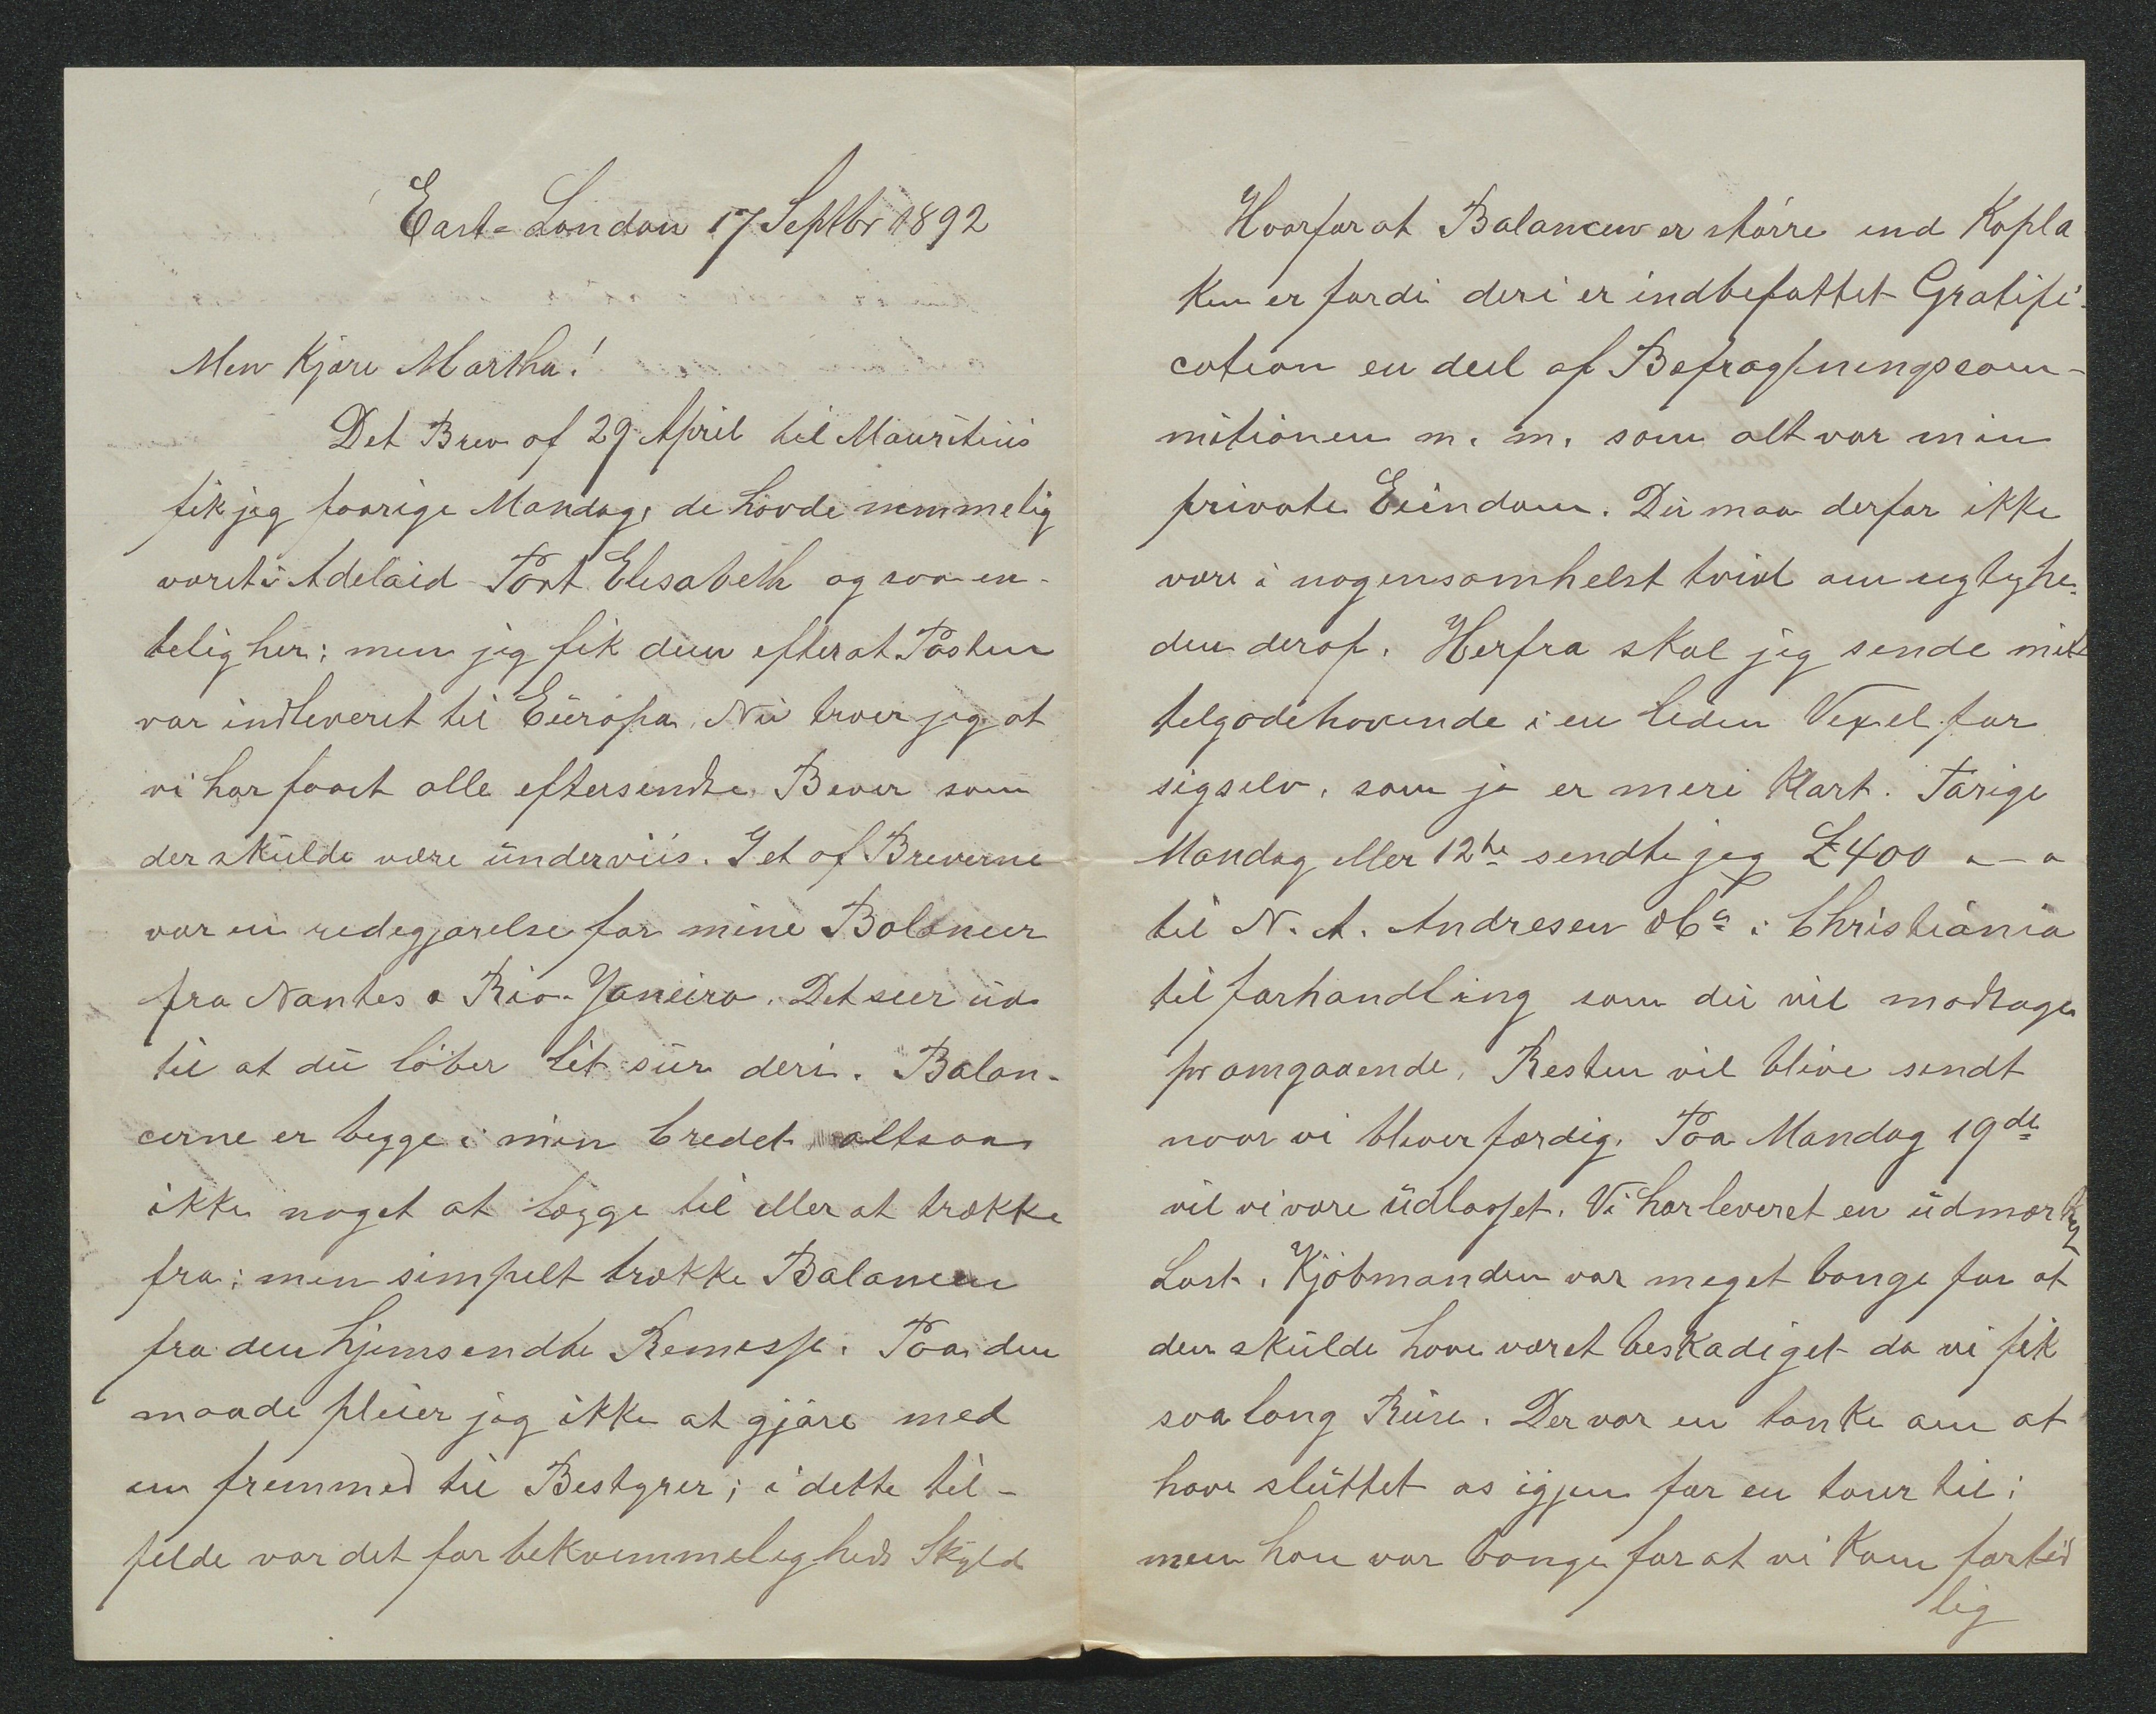 East-London 17 Septbr 1892
Min Kjære Martha!
Det Brev af 29 April til Mauritius
fik jeg forrige Mandag, de havde nemmelig
været i Adelaid Port Elisabeth og saa en-
telig her; men jeg fik dem efter at Posten
var indleveret til Europa. Nu troer jeg at
vi har faaet alle eftersendte Brever som
der skulde være underviis. I et af Breverne
var en redegjørelse for mine Balancer
fra Nantes a Rio-Janeiro. Det seer ud
til at du løber lit sur deri. Balan-
cerne er begge i min Credet altsaa
ikke noget at lægge til eller at trække
fra; men simpelt trække Balancen
fra den hjemsendte Remesse. Paa den
maade pleier jeg ikke at gjøre med
en fremmed til Bestyrer; i dette til-
felde var det for bekvemmeligheds Skyld
Hvorfor at Balancen er større end Kapla
ken er fordi deri er indbefattet Gratifi-
cation en deel af Befragtningscom-
mitionen m. m. som alt var min
private Eiendom. Du maa derfor ikke
være i nogensomhelst tvivl om rigtyhe-
den deraf. Herfra skal jeg sende mit
telgodehavende i en liden Vexel for
sigselv, som jo er meri klart. Forige
Mandag eller 12te sendte jeg £400 "-"
til N. A. Andresen & Co i Christiania
til forhandling som du vil modtage
pr omgaaende, Resten vil blive sendt
naar vi bliver færdig. Paa Mandag 19de
vil vi være udlosset. Vi har leveret en udmærket
Last. Kjöbmanden var meget bange for at
den skulde have været beskadiget da vi fik
saa lang Reise. Der var en tanke om at
have sluttet os igjen for en tour til;
men han var bange for at vi kom fortid
lig